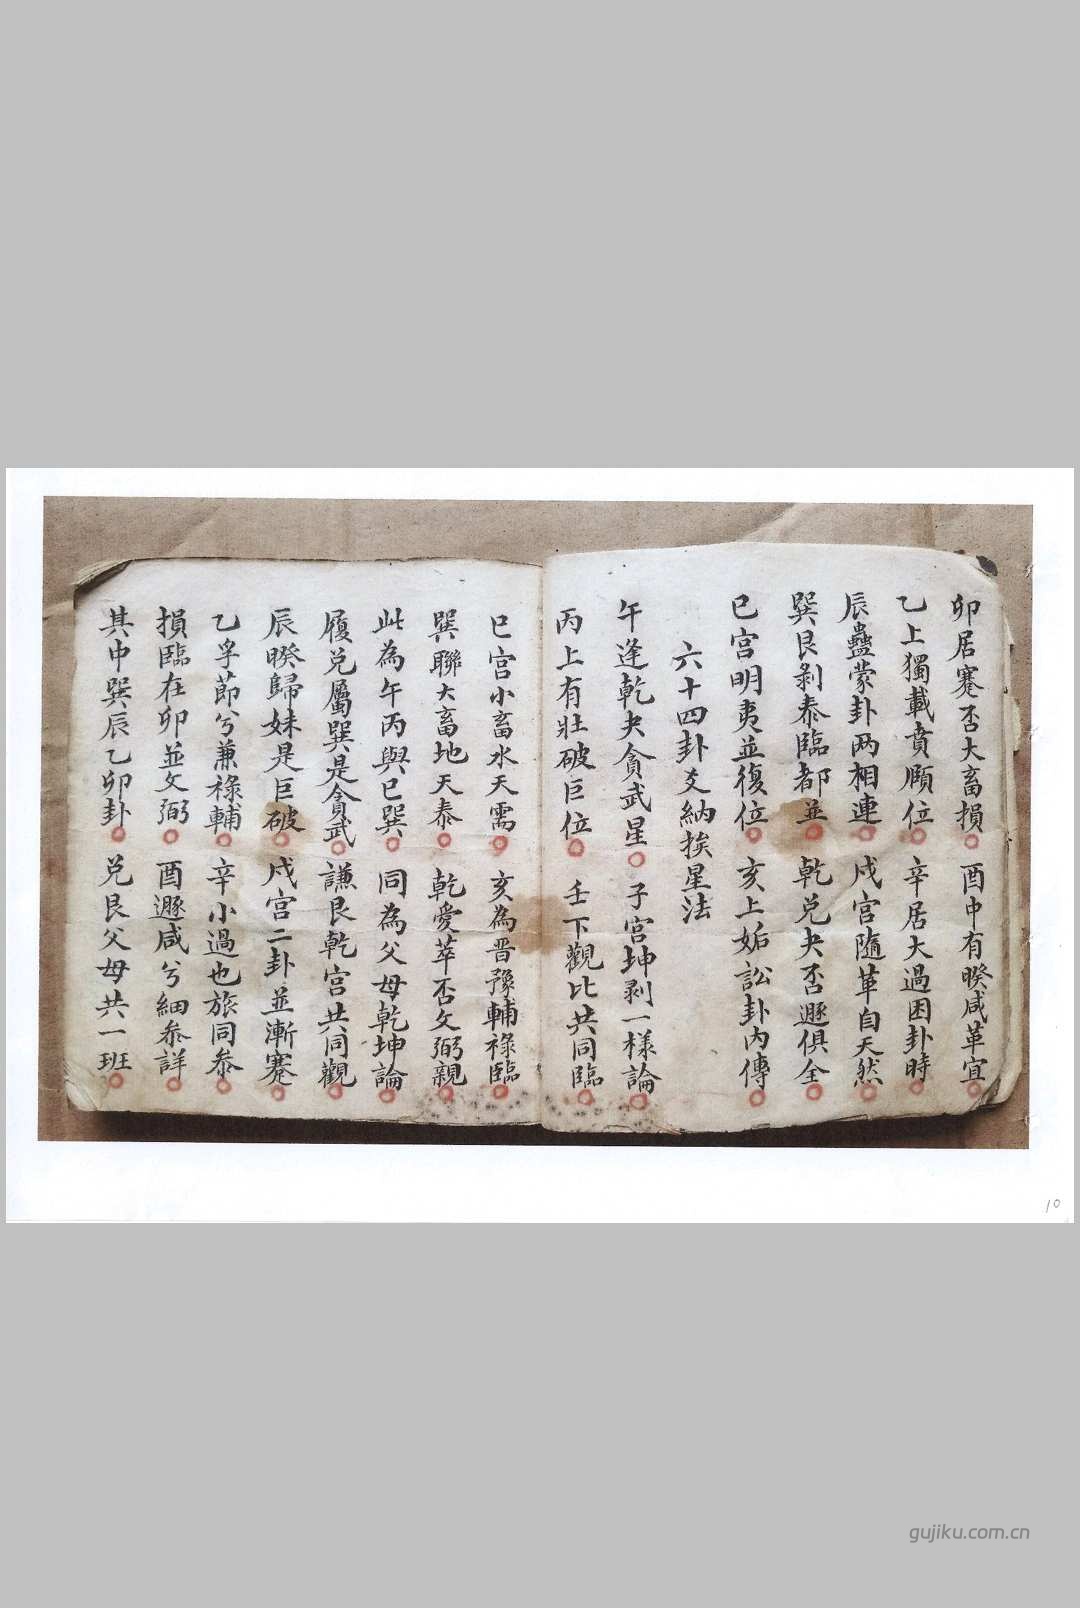 卯居蹇否大畜損○酉中有睽咸革宜○
乙上獨載賁頤位○辛居大過困卦時○
辰蠱蒙卦两相連○戍宮隨革自天然○
巽艮剥泰臨都並○乾兑夬否遯俱全○
巳宮明夷並復位○亥上姤訟卦内傳○
六十四卦爻納挨星法
午逢乾夬貪武星○子宮坤剥一様論○
丙上有壯破巨位○壬下觀比共同臨○
巳宮小畜水天需○亥為晋豫輔祿臨○
巽聯大畜地天泰○乾愛萃否文弼親○
此為午丙與巳巽○同為父母乾坤論○
履兑屬巽是貪武○謙艮乾宮共同觀○
辰睽歸妹是巨破○戍宮二卦並漸蹇○
乙孚節兮兼祿輔○辛小過也旅同叅○
損臨在卯並文弼○酉遯咸兮細叅詳○
其中巽辰乙卯卦○兑艮父母共一班○
10
gujiku.com.cn